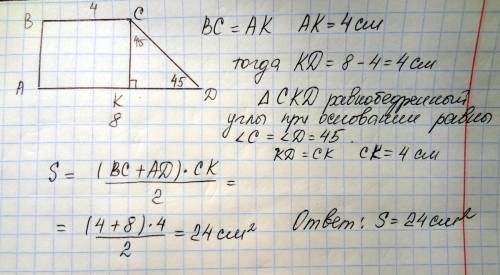 B 4 C
45
A K 45 D
8
BC = AK AK = 4 см
тогда KD = 8 - 4 = 4 см
△ CKD равнобедренный
углы при основании равны
∠C = ∠D = 45
KD = CK CK = 4 см
S = (BC + AD) · CK / 2 =
= (4 + 8) · 4 / 2 = 24 см²
Ответ: S = 24 см²